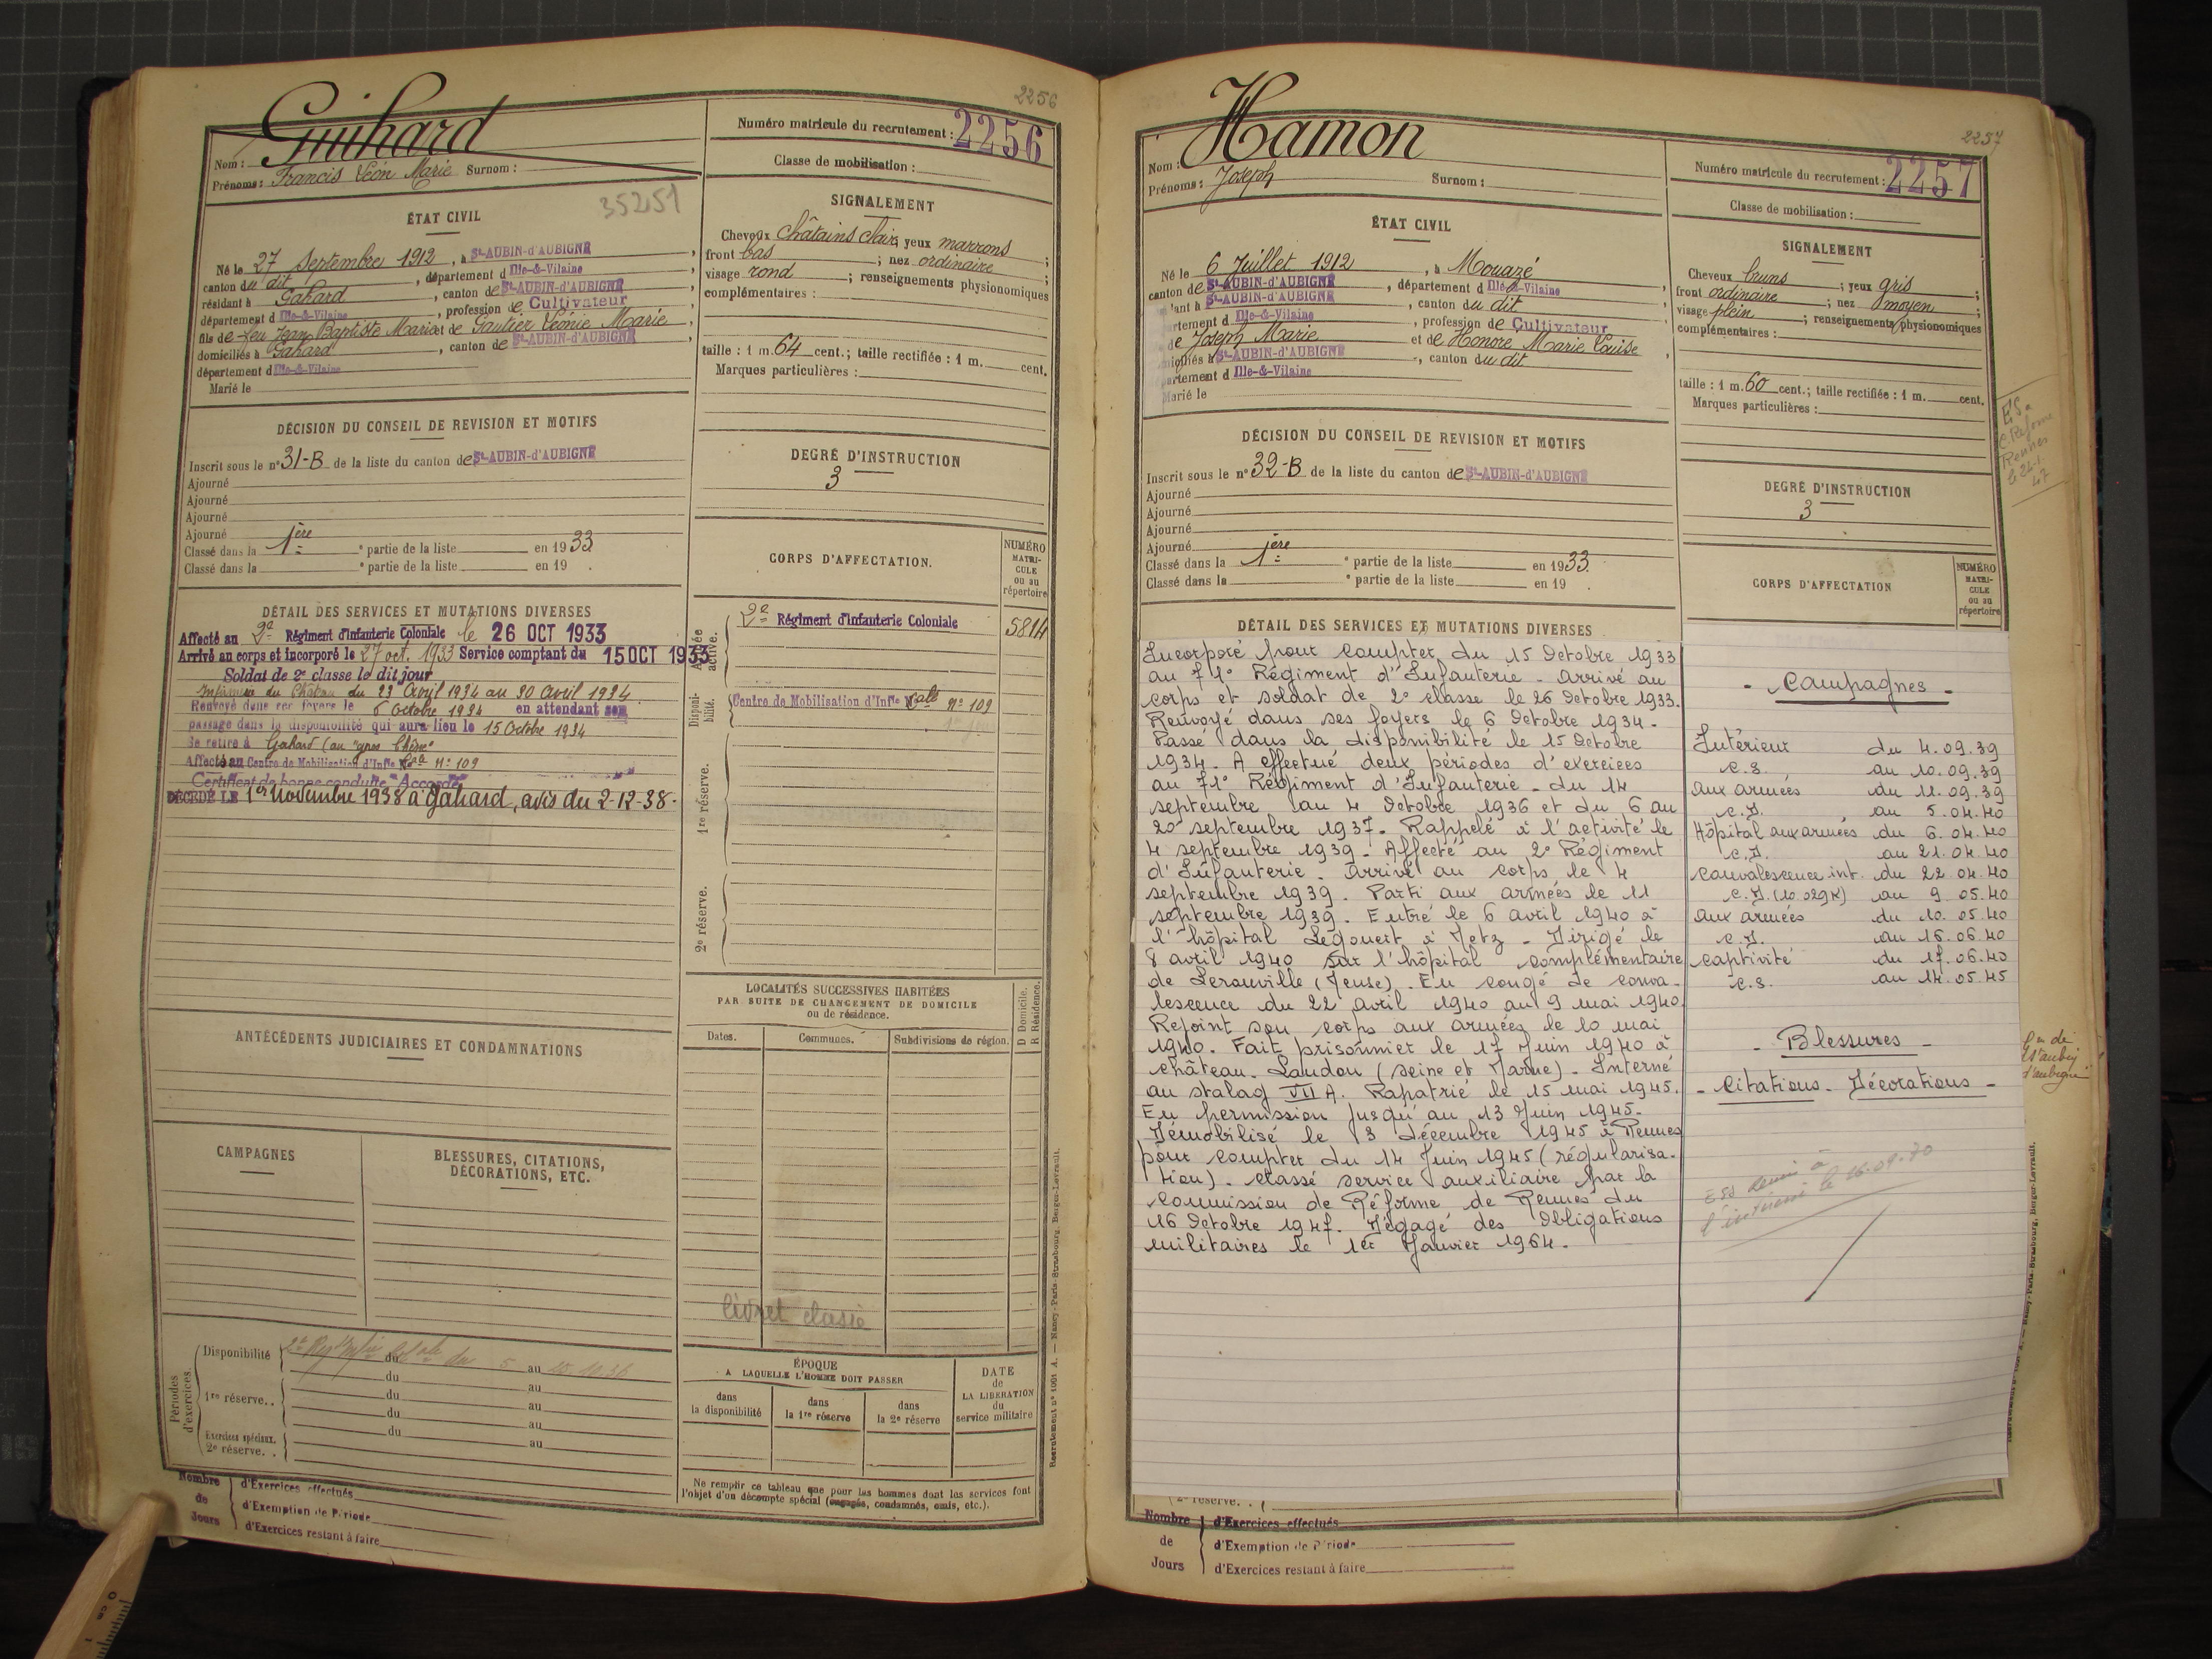 2256
Guihard
Nom :
Prénoms : Francis Léon Marie Surnom :
Numéro matricule du recrutement : 2256
Classe de mobilisation :
35251
ÉTAT CIVIL
Né le 27 Septembre 1912, à St-AUBIN-d'AUBIGNÉ,
canton du dit, département d Ille-&-Vilaine,
résidant à Gahard, canton de St-AUBIN-d'AUBIGNÉ,
département d Ille-&-Vilaine, profession de Cultivateur,
fils de feu Jean Baptiste Marie et de Gautier Léonie Marie,
domiciliés à Gahard, canton de St-AUBIN-d'AUBIGNÉ,
département d Ille-&-Vilaine
Marié le
SIGNALEMENT
Cheveux châtains clair; yeux marrons;
front bas; nez ordinaire;
visage rond; renseignements physionomiques
complémentaires :
taille : 1 m. 64 cent.; taille rectifiée : 1 m. cent.
Marques particulières :
DÉCISION DU CONSEIL DE REVISION ET MOTIFS
Inscrit sous le n° 31-B de la liste du canton de St-AUBIN-d'AUBIGNÉ
Ajourné
Ajourné
Ajourné
Ajourné
Classé dans la 1ère partie de la liste en 1933
Classé dans la e partie de la liste en 19 .
DEGRÉ D'INSTRUCTION
3
CORPS D'AFFECTATION.
NUMÉRO MATRI-CULE ou au répertoire
Armée active.
2e Régiment d'Infanterie Coloniale 5814
Disponi-bilité.
Centre de Mobilisation d'Infie Cale n° 109
1re réserve.
2e réserve.
DÉTAIL DES SERVICES ET MUTATIONS DIVERSES
Affecté au 2e Régiment d'Infanterie Coloniale le 26 OCT 1933
Arrivé au corps et incorporé le 27 oct. 1933 Service comptant du 15 OCT 1933
Soldat de 2e classe le dit jour
Infirmerie du Château du 23 Avril 1934 au 30 Avril 1934
Renvoyé dans ses foyers le 6 Octobre 1934 en attendant son
passage dans la disponibilité qui aura lieu le 15 Octobre 1934
Se retire à Gahard (au "gros Chêne"
Affecté au Centre de Mobilisation d'Infie Cale N° 109
Certificat de bonne conduite "Accordé"
DÉCÉDÉ LE 1er Novembre 1938 à Gahard, avis du 2-12-38.
LOCALITÉS SUCCESSIVES HABITÉES
PAR SUITE DE CHANGEMENT DE DOMICILE
ou de résidence.
Dates. Communes. Subdivisions de région. D Domicile. R Résidence.
livret classé
ANTÉCÉDENTS JUDICIAIRES ET CONDAMNATIONS
CAMPAGNES
BLESSURES, CITATIONS,
DÉCORATIONS, ETC.
Périodes d'exercices.
Disponibilité du 5 au 25.10.36
1re réserve.. du au
du au
du au
Exercices spéciaux.
2e réserve. . du au
ÉPOQUE
A LAQUELLE L'HOMME DOIT PASSER
dans la disponibilité
dans la 1re réserve
dans la 2e réserve
DATE de LA LIBÉRATION du service militaire
Ne remplir ce tableau que pour les hommes dont les services font
l'objet d'un décompte spécial (engagés, condamnés, omis, etc.).
Nombre de Jours
d'Exercices effectués
d'Exemption de Période
d'Exercices restant à faire
Recrutement n° 1001 A. — Nancy-Paris-Strasbourg, Berger-Levrault.
2257
Hamon
Nom :
Prénoms : Joseph Surnom :
Numéro matricule du recrutement : 2257
Classe de mobilisation :
ÉTAT CIVIL
Né le 6 Juillet 1912, à Mouazé
canton de St-AUBIN-d'AUBIGNÉ, département d Ille-&-Vilaine
dant à St-AUBIN-d'AUBIGNÉ, canton du dit,
rtement d Ille-&-Vilaine, profession de Cultivateur
de Joseph Marie et de Honore Marie Louise,
iciliés à St-AUBIN-d'AUBIGNÉ, canton du dit
partement d Ille-&-Vilaine
Marié le
SIGNALEMENT
Cheveux bruns; yeux gris;
front ordinaire; nez moyen;
visage plein; renseignements physionomiques
complémentaires :
taille : 1 m. 60 cent.; taille rectifiée : 1 m. cent.
Marques particulières :
DÉCISION DU CONSEIL DE REVISION ET MOTIFS
Inscrit sous le n° 32-B de la liste du canton de St-AUBIN-d'AUBIGNÉ
Ajourné
Ajourné
Ajourné
Ajourné
Classé dans la 1ère partie de la liste en 1933
Classé dans la e partie de la liste en 19 .
DEGRÉ D'INSTRUCTION
3
CORPS D'AFFECTATION
NUMÉRO MATRI-CULE ou au répertoire
C. Réforme
Rennes
DÉTAIL DES SERVICES ET MUTATIONS DIVERSES
Incorporé pour compter du 15 Octobre 1933
au 71e Régiment d'Infanterie - arrivé au
corps et soldat de 2e classe le 26 Octobre 1933.
Renvoyé dans ses foyers le 6 Octobre 1934.
Passé dans la disponibilité le 15 Octobre
1934. A effectué deux périodes d'exercices
au 71e Régiment d'Infanterie - du 14
septembre au 4 Octobre 1936 et du 6 au
20 septembre 1937. Rappelé à l'activité le
4 septembre 1939. Affecté au 2e Régiment
d'Infanterie. Arrivé au corps le 4
septembre 1939. Parti aux armées le 11
septembre 1939. Entré le 6 avril 1940 à
l'hôpital Legouest à Metz - Dirigé le
8 avril 1940 sur l'hôpital complémentaire
de Lerouville (Meuse). En congé de conva-
lescence du 22 avril 1940 au 9 mai 1940.
Rejoint son corps aux armées le 10 mai
1940. Fait prisonnier le 17 Juin 1940 à
château-Landon (Seine et Marne). Interné
au stalag VII A. Rapatrié le 15 mai 1945.
En permission jusqu'au 13 Juin 1945.
Démobilisé le 3 décembre 1945 à Rennes
pour compter du 14 Juin 1945 (régularisa-
tion). classé service auxiliaire par la
Commission de Réforme de Rennes du
16 Octobre 1947. Dégagé des Obligations
militaires le 1er Janvier 1964.
- Campagnes -
Intérieur du 4.09.39
C.S. au 10.09.39
aux armées du 11.09.39
C.D. au 5.04.40
Hôpital aux armées du 6.04.40
C.D. au 21.04.40
convalescence int. du 22.04.40
C.D. (10.029K) au 9.05.40
aux armées du 10.05.40
C.D. au 16.06.40
captivité du 17.06.40
C.S. au 14.05.45
- Blessures -
- Citations - Décorations -
ESS remis à
l'intéressé le
2e réserve. .
Nombre de Jours
d'Exercices effectués
d'Exemption de Période
d'Exercices restant à faire
Nancy-Paris-Strasbourg, Berger-Levrault.